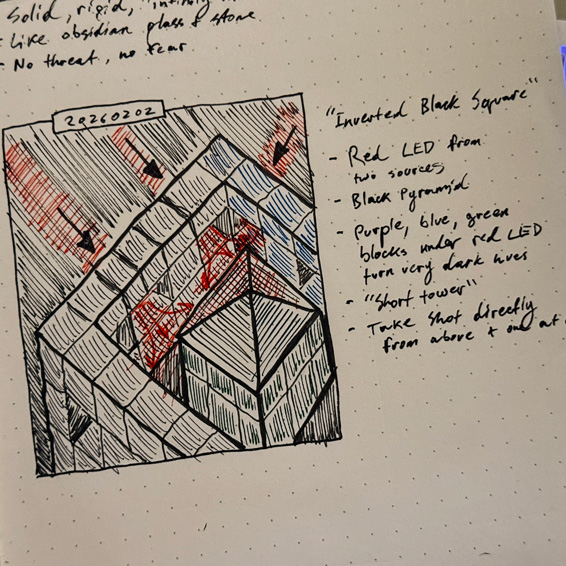 Solid, rigid, "infinity
- Like obsidian glass & stone
- No threat, no fear
20260202
"Inverted Black Square"
- Red LED from
two sources
- Black Pyramid
- Purple, blue, green
blocks under red LED
turn very dark hues
- "Short tower"
- Take shot directly
from above + one at